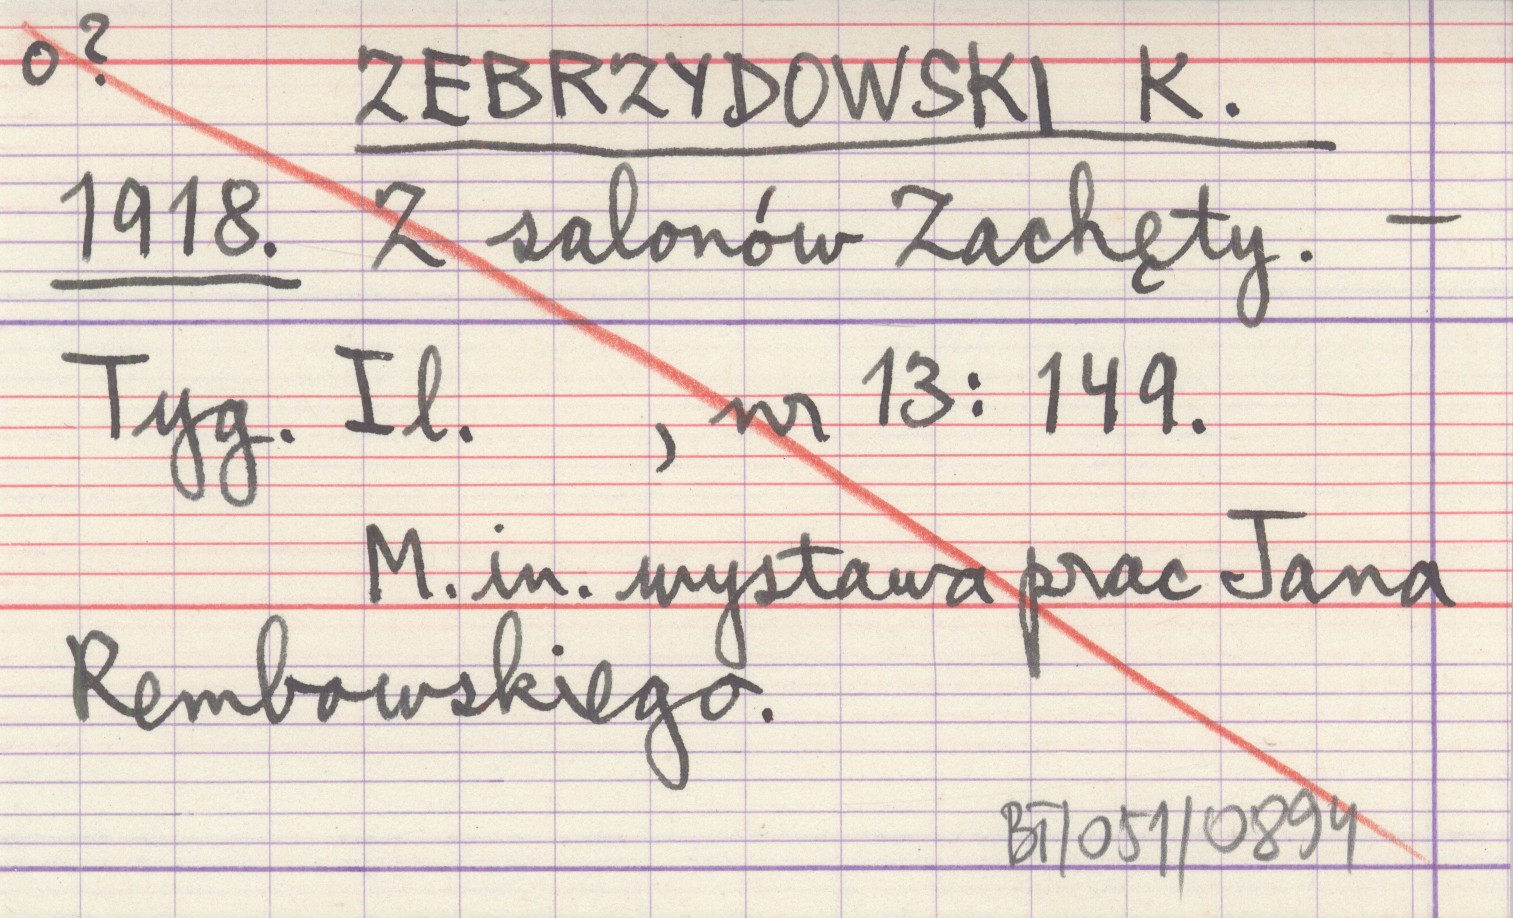 o? ZEBRZYDOWSKI K.
1918. Z salonów Zachęty. —
Tyg. Il. , nr 13: 149.
M. in. wystawa prac Jana
Rembowskiego.
BT/051/0894